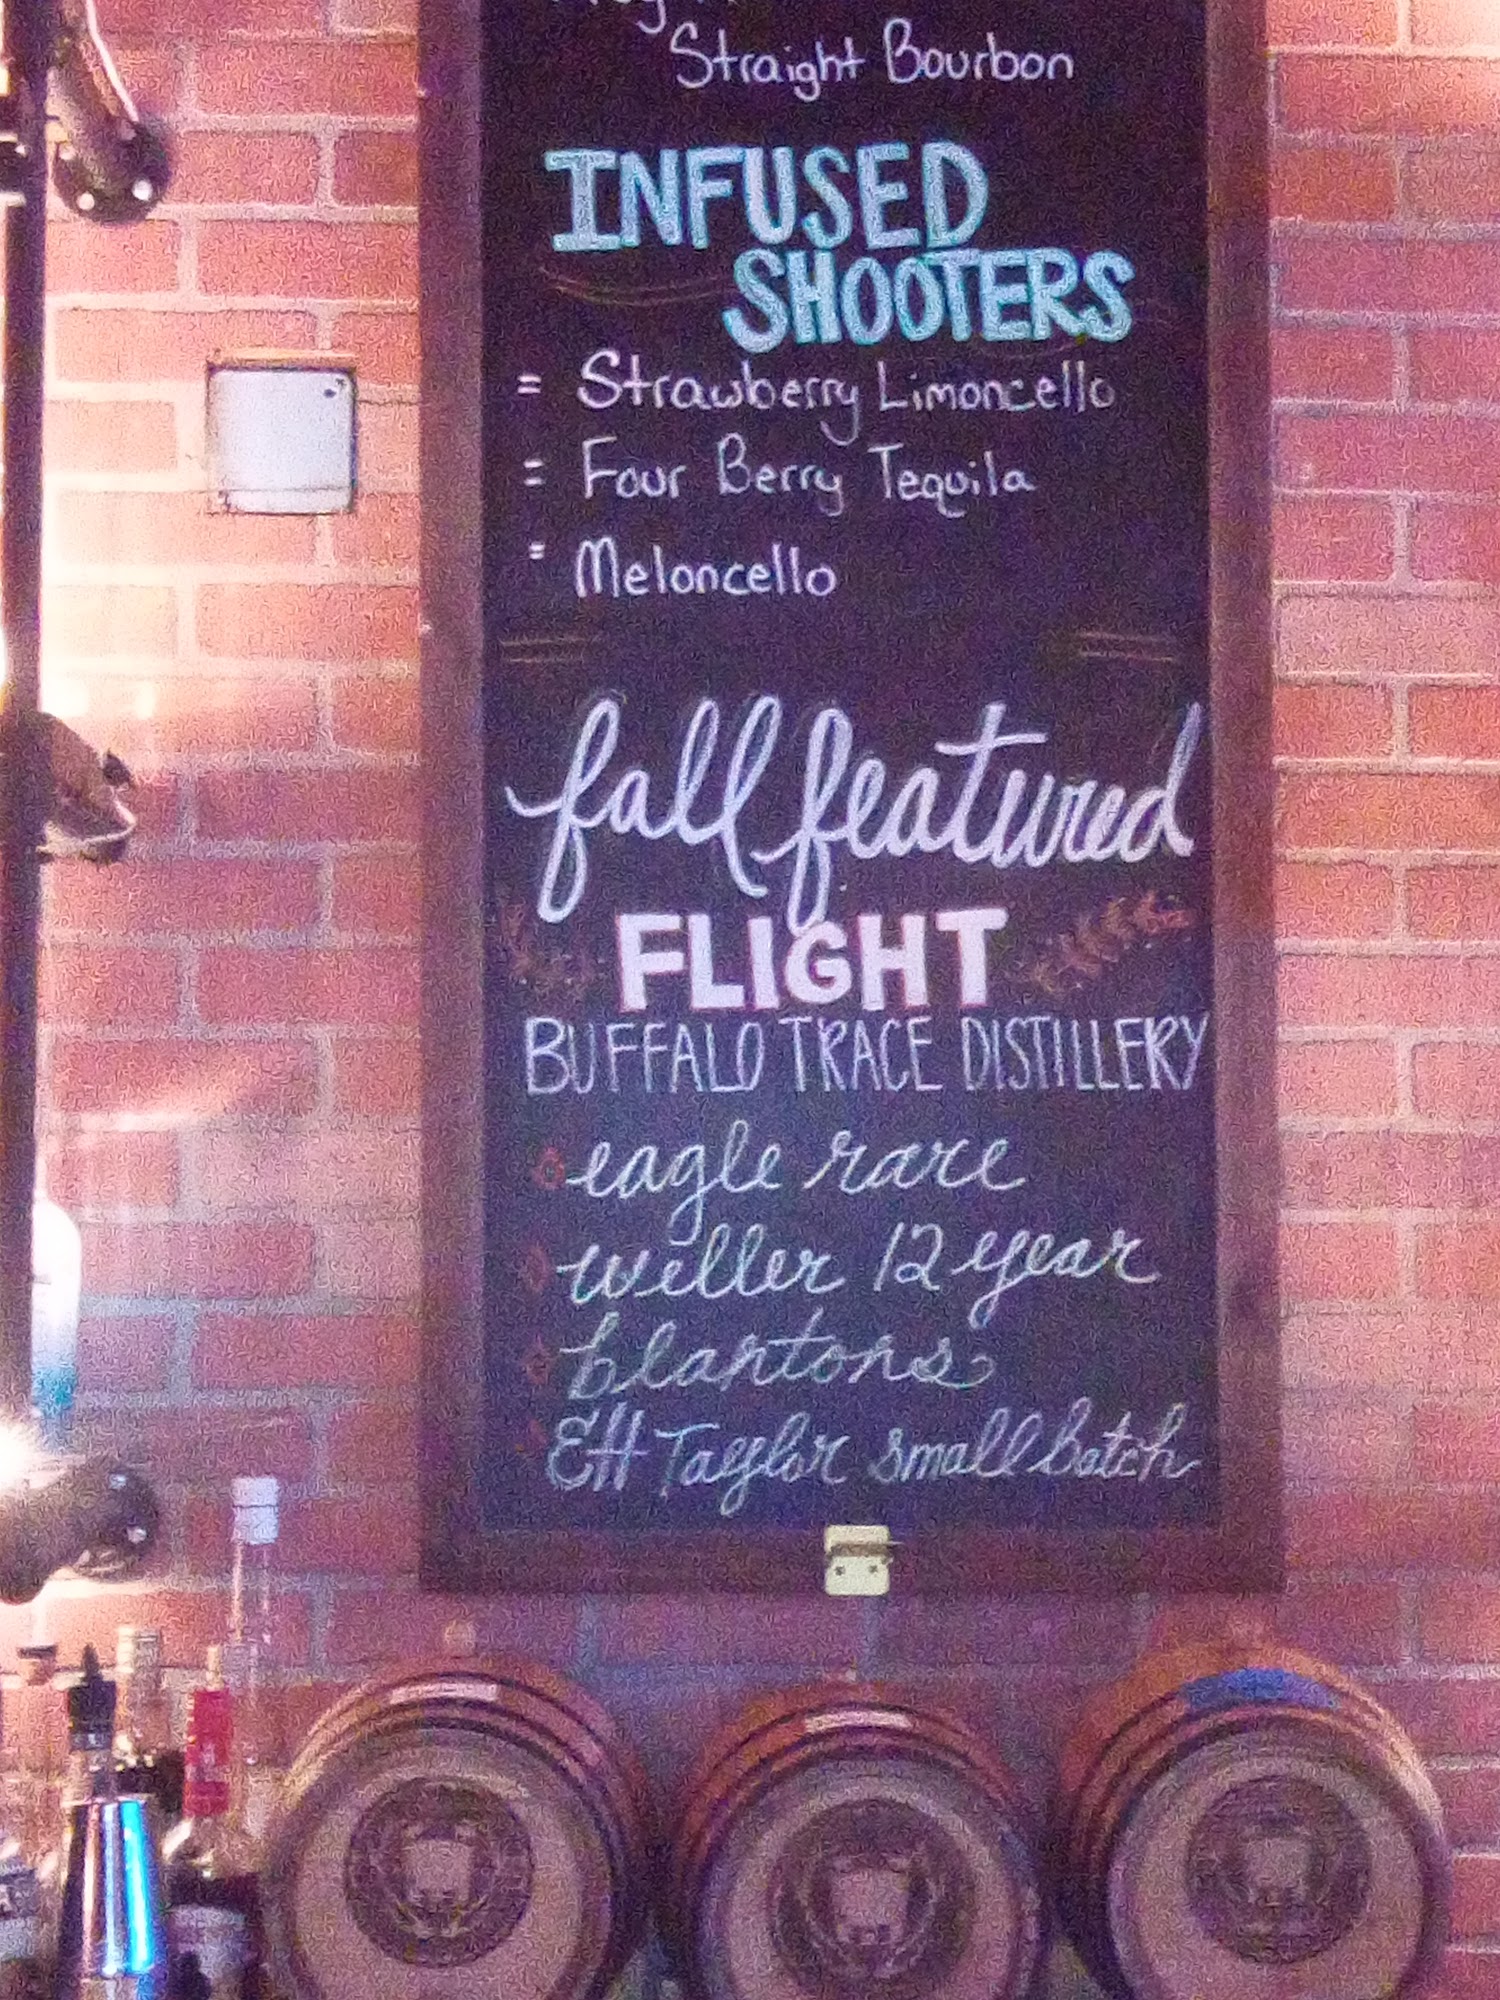 Straight Bourbon
INFUSED
SHOOTERS
= Strawberry Limoncello
= Four Berry Tequila
= Meloncello
fall featured
FLIGHT
BUFFALO TRACE DISTILLERY
eagle rare
weller 12 year
blantons
EH Taylor small batch